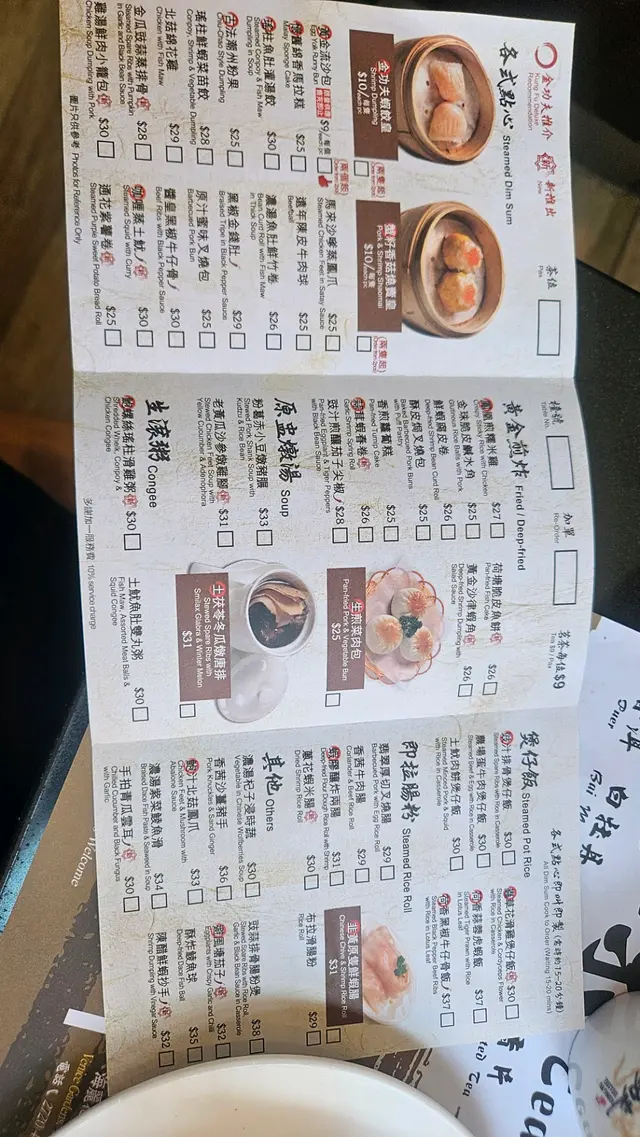 金功夫推介
Kung Fu Deluxe
Recommendation
新推出
New
茶位
Pax
各式點心 Steamed Dim Sum
金功夫蝦餃皇
Shrimp Dumpling
$10/每隻
/each pc
兩隻起
Order from 2pcs
蟹籽香菇燒賣皇
Pork & Shrimp Shaomai
$10/每隻
/each pc
兩隻起
Order from 2pcs
金流沙包
Egg Yolk Runny Bun
$9/每個
/each pc
兩個起
香馬拉糕
Malay Sponge Cake
$25
柱魚肚灌湯餃
Steamed Conpoy & Fish Maw
Dumpling in Soup
$30
古法潮州粉果
Chiu-Chao Style Dumpling
$25
瑤柱鮮蝦菜苗餃
Conpoy, Shrimp & Vegetable Dumpling
$28
北菇綿花雞
Chicken with Fish Maw
$29
金瓜豉蒜蒸排骨
Steamed Spare Ribs with Pumpkin
in Garlic and Black Bean Sauce
$28
雞湯鮮肉小籠包
Chicken Soup Dumpling with Pork
$30
馬來沙嗲蒸鳳爪
Steamed Chicken Feet in Satay Sauce
$25
遠年陳皮牛肉球
Beefball
$25
濃湯魚肚鮮竹卷
Bean Curd Roll with Fish Maw
in Thick Soup
$26
黑椒金錢肚
Braised Tripe in Black Pepper Sauce
$29
原汁蜜味叉燒包
Barbecued Pork Bun
$25
醬皇黑椒牛仔骨
Beef Ribs with Black Pepper Sauce
$30
咖喱蒸土魷
Steamed Squid with Curry
$30
通花紫薯卷
Steamed Purple Sweet Potato Bread Roll
$25
圖片只供參考 Photos for Reference Only
檯號
Table No.
加單
Re-Order
茗茶每位$9
Tea $9 / Pax
黃金煎炸 Fried / Deep-fried
煎糯米雞
Sticky Rice with Chicken
$27
金珠脆皮鹹水角
Glutinous Rice Balls with Pork
$25
鮮蝦腐皮卷
Deep-fried Shrimp Bean Curd Roll
$26
酥皮焗叉燒包
Baked Barbecued Pork Buns
with Puff Pastry
$25
香煎蘿蔔糕
Pan-fried Turnip Cake
$25
蝦春卷
Garlic Shrimp Spring Roll
$26
豉汁煎釀茄子尖椒
Pan-fried Eggplant & Tiger Peppers
with Black Bean Sauce
$28
荷塘脆皮魚餅
Pan-fried Fish Cake
$26
黃金沙律蝦角
Deep-fried Shrimp Dumpling with
Salad Sauce
$26
生煎菜肉包
Pan-fried Pork & Vegetable Bun
$25
原盅燉湯 Soup
粉葛赤小豆燉豬𦟌
Stewed Pork Shank Soup with
Kudzu & Rice Bean
$33
老黃瓜沙參燉雞腳
Stewed Chicken Feet Soup with
Yellow Cucumber & Adenophora
$31
土茯苓冬瓜燉唐排
Stewed Spare Ribs with
Smilax Glabra & Winter Melon
$31
生滾粥 Congee
螺絲瑤柱滑雞粥
Shredded Whelk, Conpoy &
Chicken Congee
$30
土魷魚肚雙丸粥
Fish Maw, Assorted Meat Balls &
Squid Congee
$30
多謝加一服務費 10% service charge
各式點心即叫即製 (需時約15-20分鐘)
All Dim Sum Cook to Order (Waiting 15-20 mins)
煲仔飯 Steamed Pot Rice
汁排骨煲仔飯
Steamed Spare Ribs with Rice in Casserole
$30
農場蛋牛肉煲仔飯
Steamed Beef & Egg with Rice in Casserole
$30
土魷肉餅煲仔飯
Steamed Minced Pork & Squid
with Rice in Casserole
$30
草花滑雞煲仔飯
Steamed Chicken & Cordyceps Flower
with Rice in Casserole
$30
香蒜蓉虎蝦飯
Steamed Tiger Prawn with Rice
in Lotus Leaf
$37
香黑椒牛仔骨飯
Steamed Black Pepper Beef Ribs
with Rice in Lotus Leaf
$37
即拉腸粉 Steamed Rice Roll
翡翠厚切叉燒腸
Barbecued Pork with Egg Rice Roll
$29
香茜牛肉腸
Coriander & Beef Rice Roll
$29
蝦膠釀炸兩腸
Deep-fried Flour Dough Rice Roll with Shrimp
$31
蔥花蝦米腸
Dried Shrimp Rice Roll
$30
韭黃原隻鮮蝦腸
Chinese Chive & Shrimp Rice Roll
$31
布拉滑腸粉
Rice Roll
$29
其他 Others
濃湯杞子浸時蔬
Vegetable in Chinese Wolfberries Soup
$30
香茜沙薑豬手
Pork Knuckles & Sand Ginger
$36
鮑汁北菇鳳爪
Chicken Feet & Mushroom with
Abalone Sauce
$33
濃湯紫菜鯪魚滑
Braised Dace Fish Paste & Seaweed in Soup
$34
手拍青瓜雲耳
Chilled Cucumber and Black Fungus
with Garlic
$30
豉蒜排骨腸粉煲
Steamed Spare Ribs with Rice Roll,
Garlic & Black Bean Sauce in Casserole
$38
風塘茄子
Eggplants with Crispy Garlic and Chili
$32
酥炸鯪魚球
Deep-fried Dace Fish Ball
$35
陳醋鮮蝦抄手
Shrimp Dumpling with Vinegar Sauce
$32
Welcome
Venice Gardens
電話